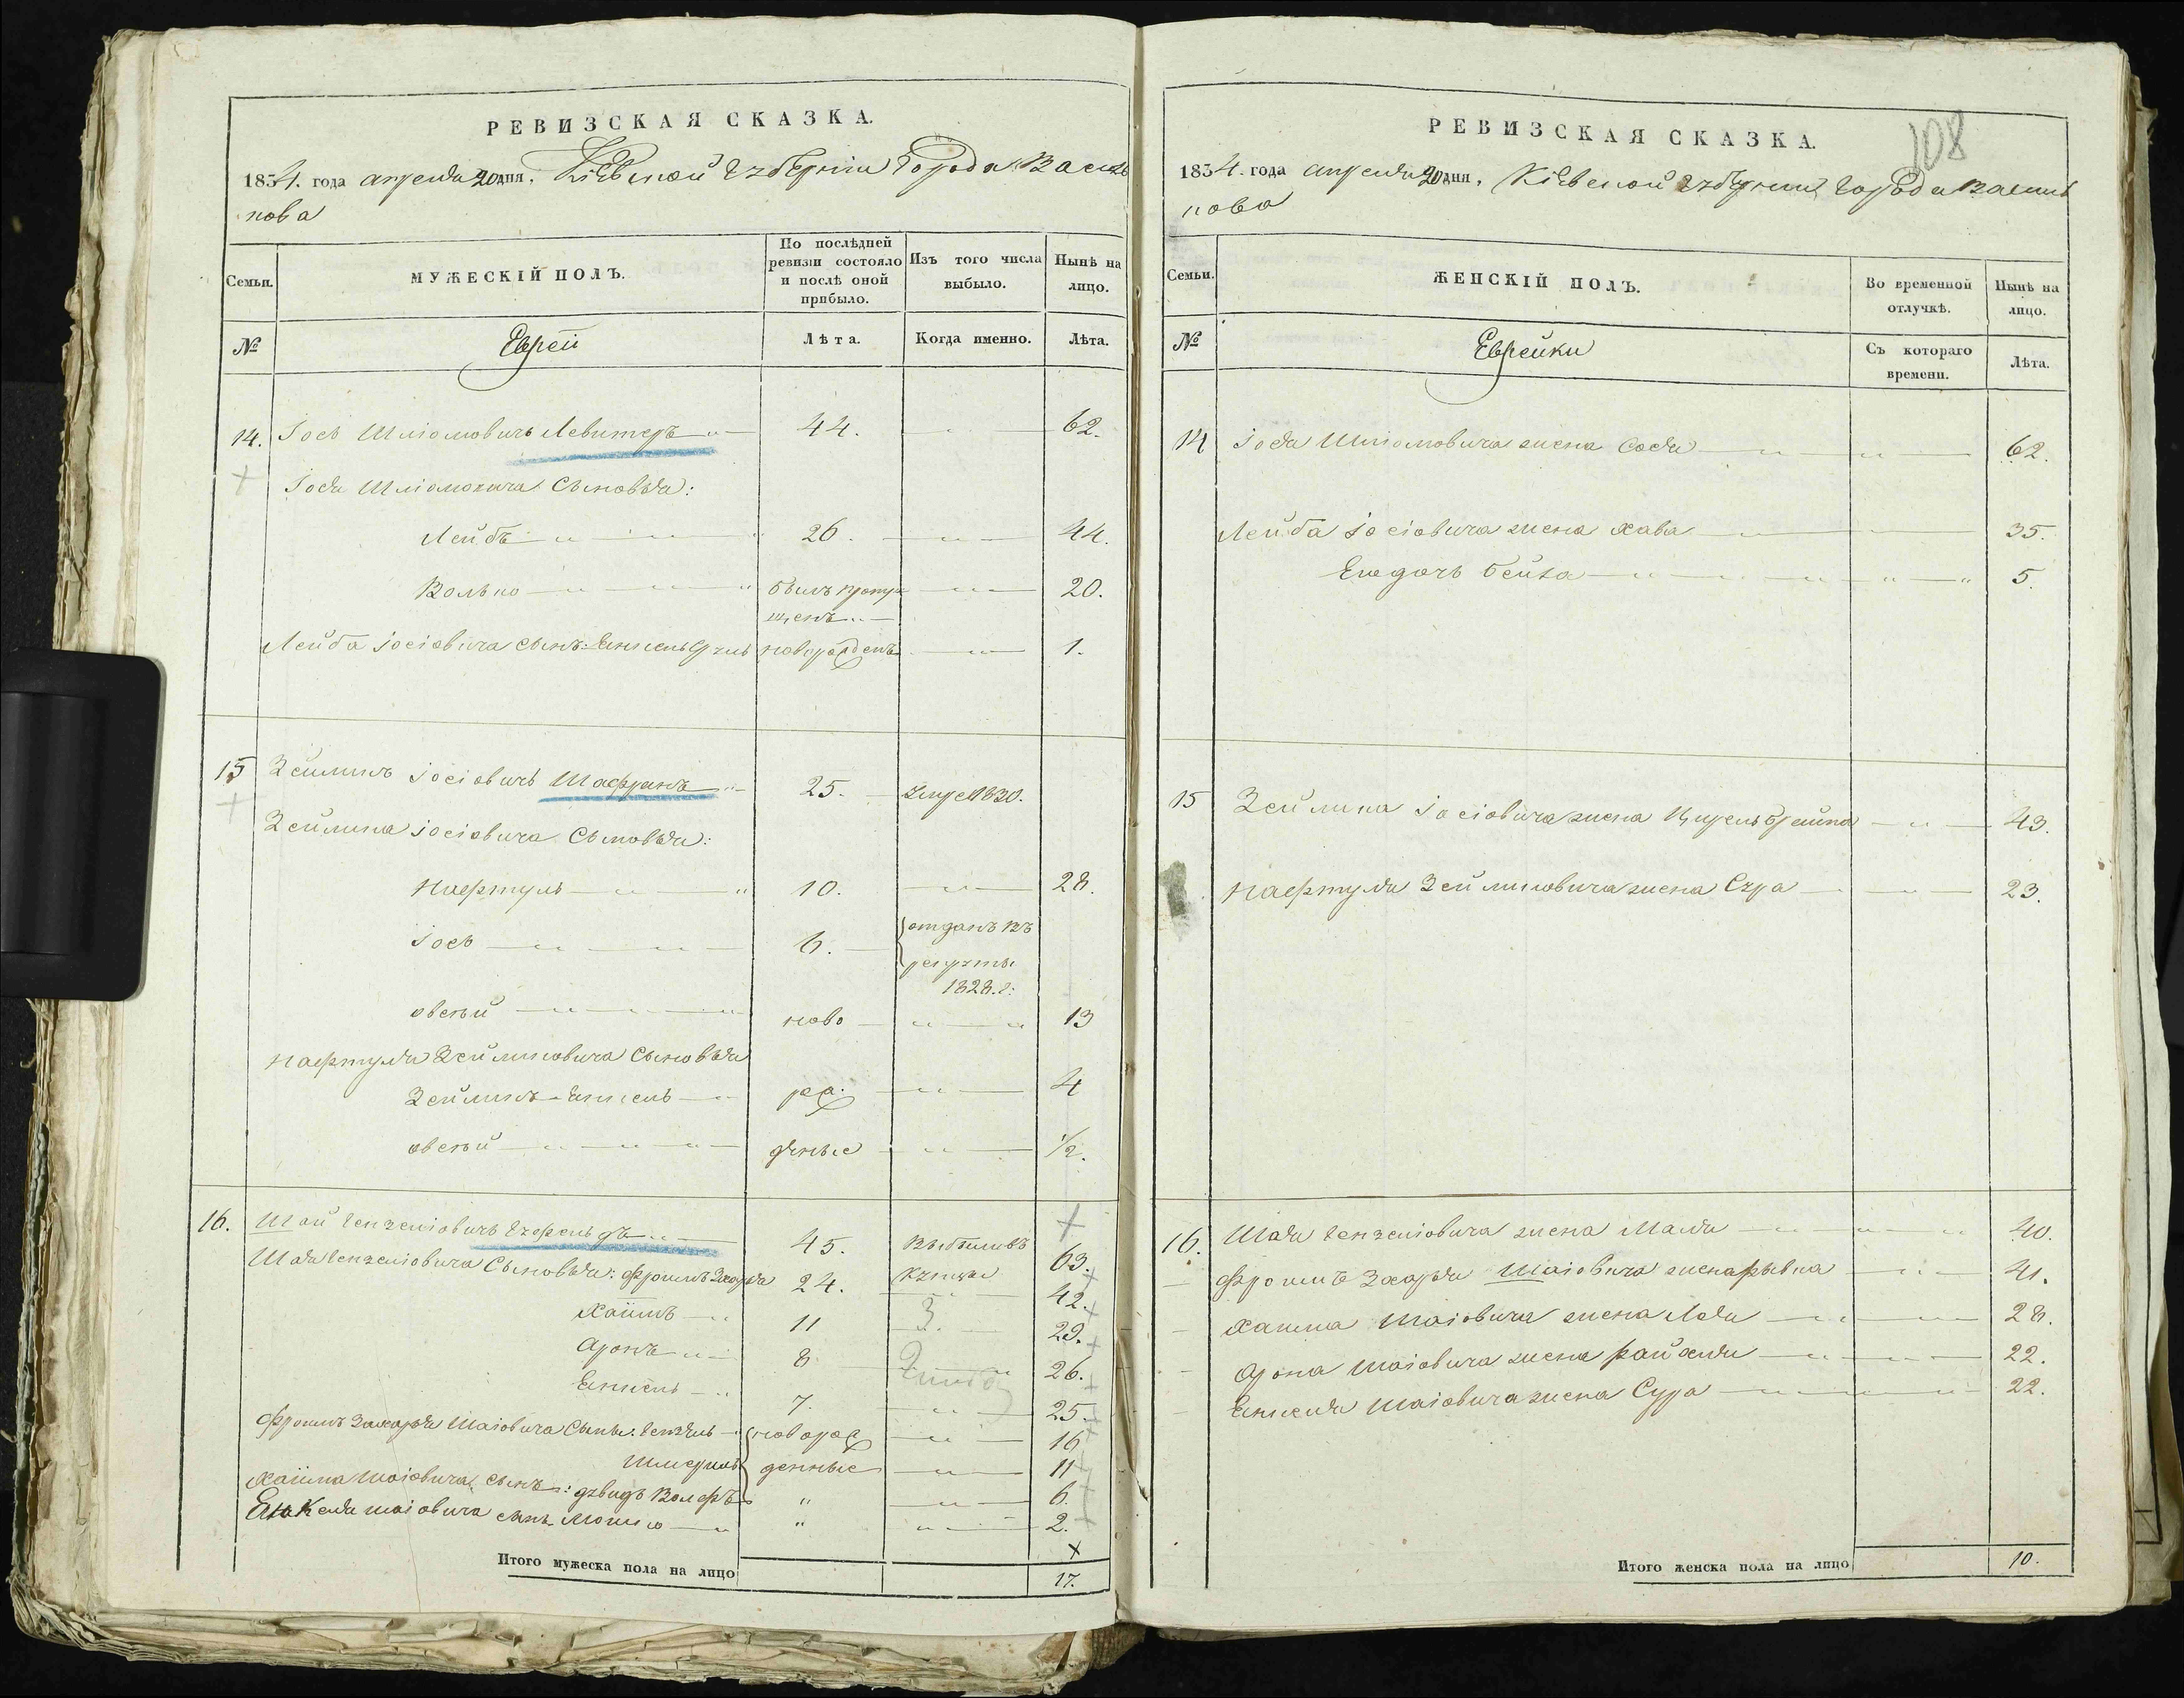 РЕВИЗСКАЯ СКАЗКА.
1834. года апреля 20 дня. Кіевской губерніи города Василь
кова
Семьи.
МУЖЕСКІЙ ПОЛЪ.
По послѣдней ревизіи состояло и послѣ оной прибыло.
Изъ того числа выбыло.
Нынѣ на лицо.
№
Еврей
Лѣта.
Когда именно.
Лѣта.
14. Іось Шліомовичъ Левитеръ 44. 62.
Іося Шліомовича Сыновья:
Лейбъ 26. 44.
Волько былъ пропу 20.
щенъ
Лейба Іосіовича сынъ Енкель новорожденъ 1.
15 Зейликъ Іосіовичъ Шафранъ 25. умре 1830.
Зейлика Іосіовича Сыновья:
Нафтуль 10. 28.
Іось 6. отданъ въ
рекруты
1828. г:
овсѣй ново 13
Нафтуля Зейликовича Сыновья
Зейликъ Енкель рож 4
овсѣй денные 1/2.
16. Шая 45. 63.
Шаи Сыновья: Фроимъ Захарья 24. 42.
Хаимъ 11 29.
Аронъ 8 26.
Енкель 7. 25.
Фроимъ Захарья Шаіовича Сыны: новорож 16
Шмериль денные 11
Хаима Шаіовича сынъ: Давидъ Волфъ " 6.
Енкеля Шаіовича сынъ Мошко " 2.
Итого мужеска пола на лицо
17.
РЕВИЗСКАЯ СКАЗКА.
108
1834. года апреля 20 дня, Кіевской губерніи города Василь
кова
Семьи.
ЖЕНСКІЙ ПОЛЪ.
Во временной отлучкѣ.
Нынѣ на лицо.
№
Еврейки
Съ котораго времени.
Лѣта.
14 Іося Шліомовича жена Сося 62.
Лейба Іосіовича жена Хава 35.
Его дочь Бейла 5.
15 Зейлика Іосіовича жена 43.
Нафтуля Зейликовича жена Сура 23.
16. Шаи жена Маля 40.
Фроимъ Захарьи Шаіовича жена Рывка 41.
Хаима Шаіовича жена Лея 28.
Арона Шаіовича жена Райхля 22.
Енкеля Шаіовича жена Сура 22.
Итого женска пола на лицо
10.